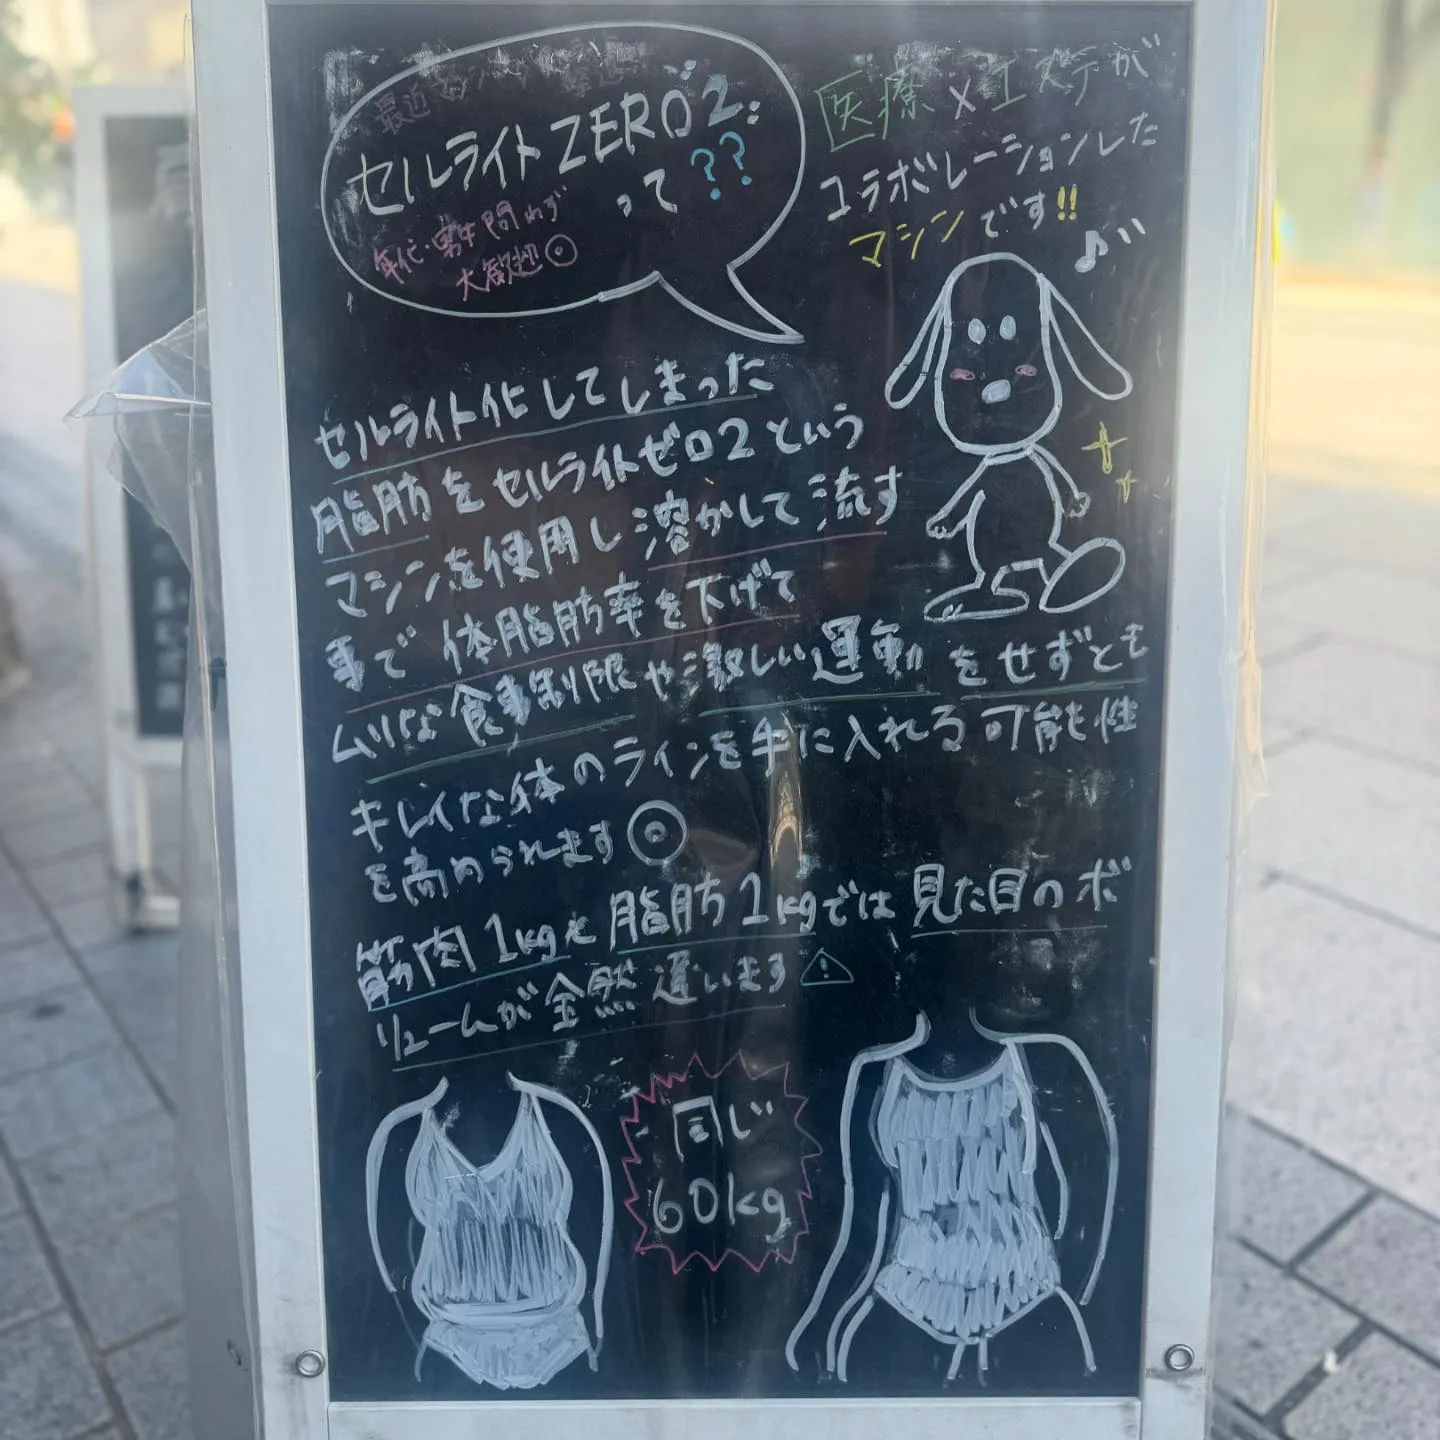 セルライトZERO2
って??
年代・男女問わず
大歓迎
医療×エステが
コラボレーションした
マシンです!!
セルライト化してしまった
脂肪をセルライトゼロ2という
マシンを使用し溶かして流す
事で体脂肪率を下げて
ムリな食事制限や激しい運動をせずとも
キレイな体のラインを手に入れる可能性
を高められます
筋肉1kgと脂肪1kgでは見た目のボ
リュームが全然違います
同じ
60kg